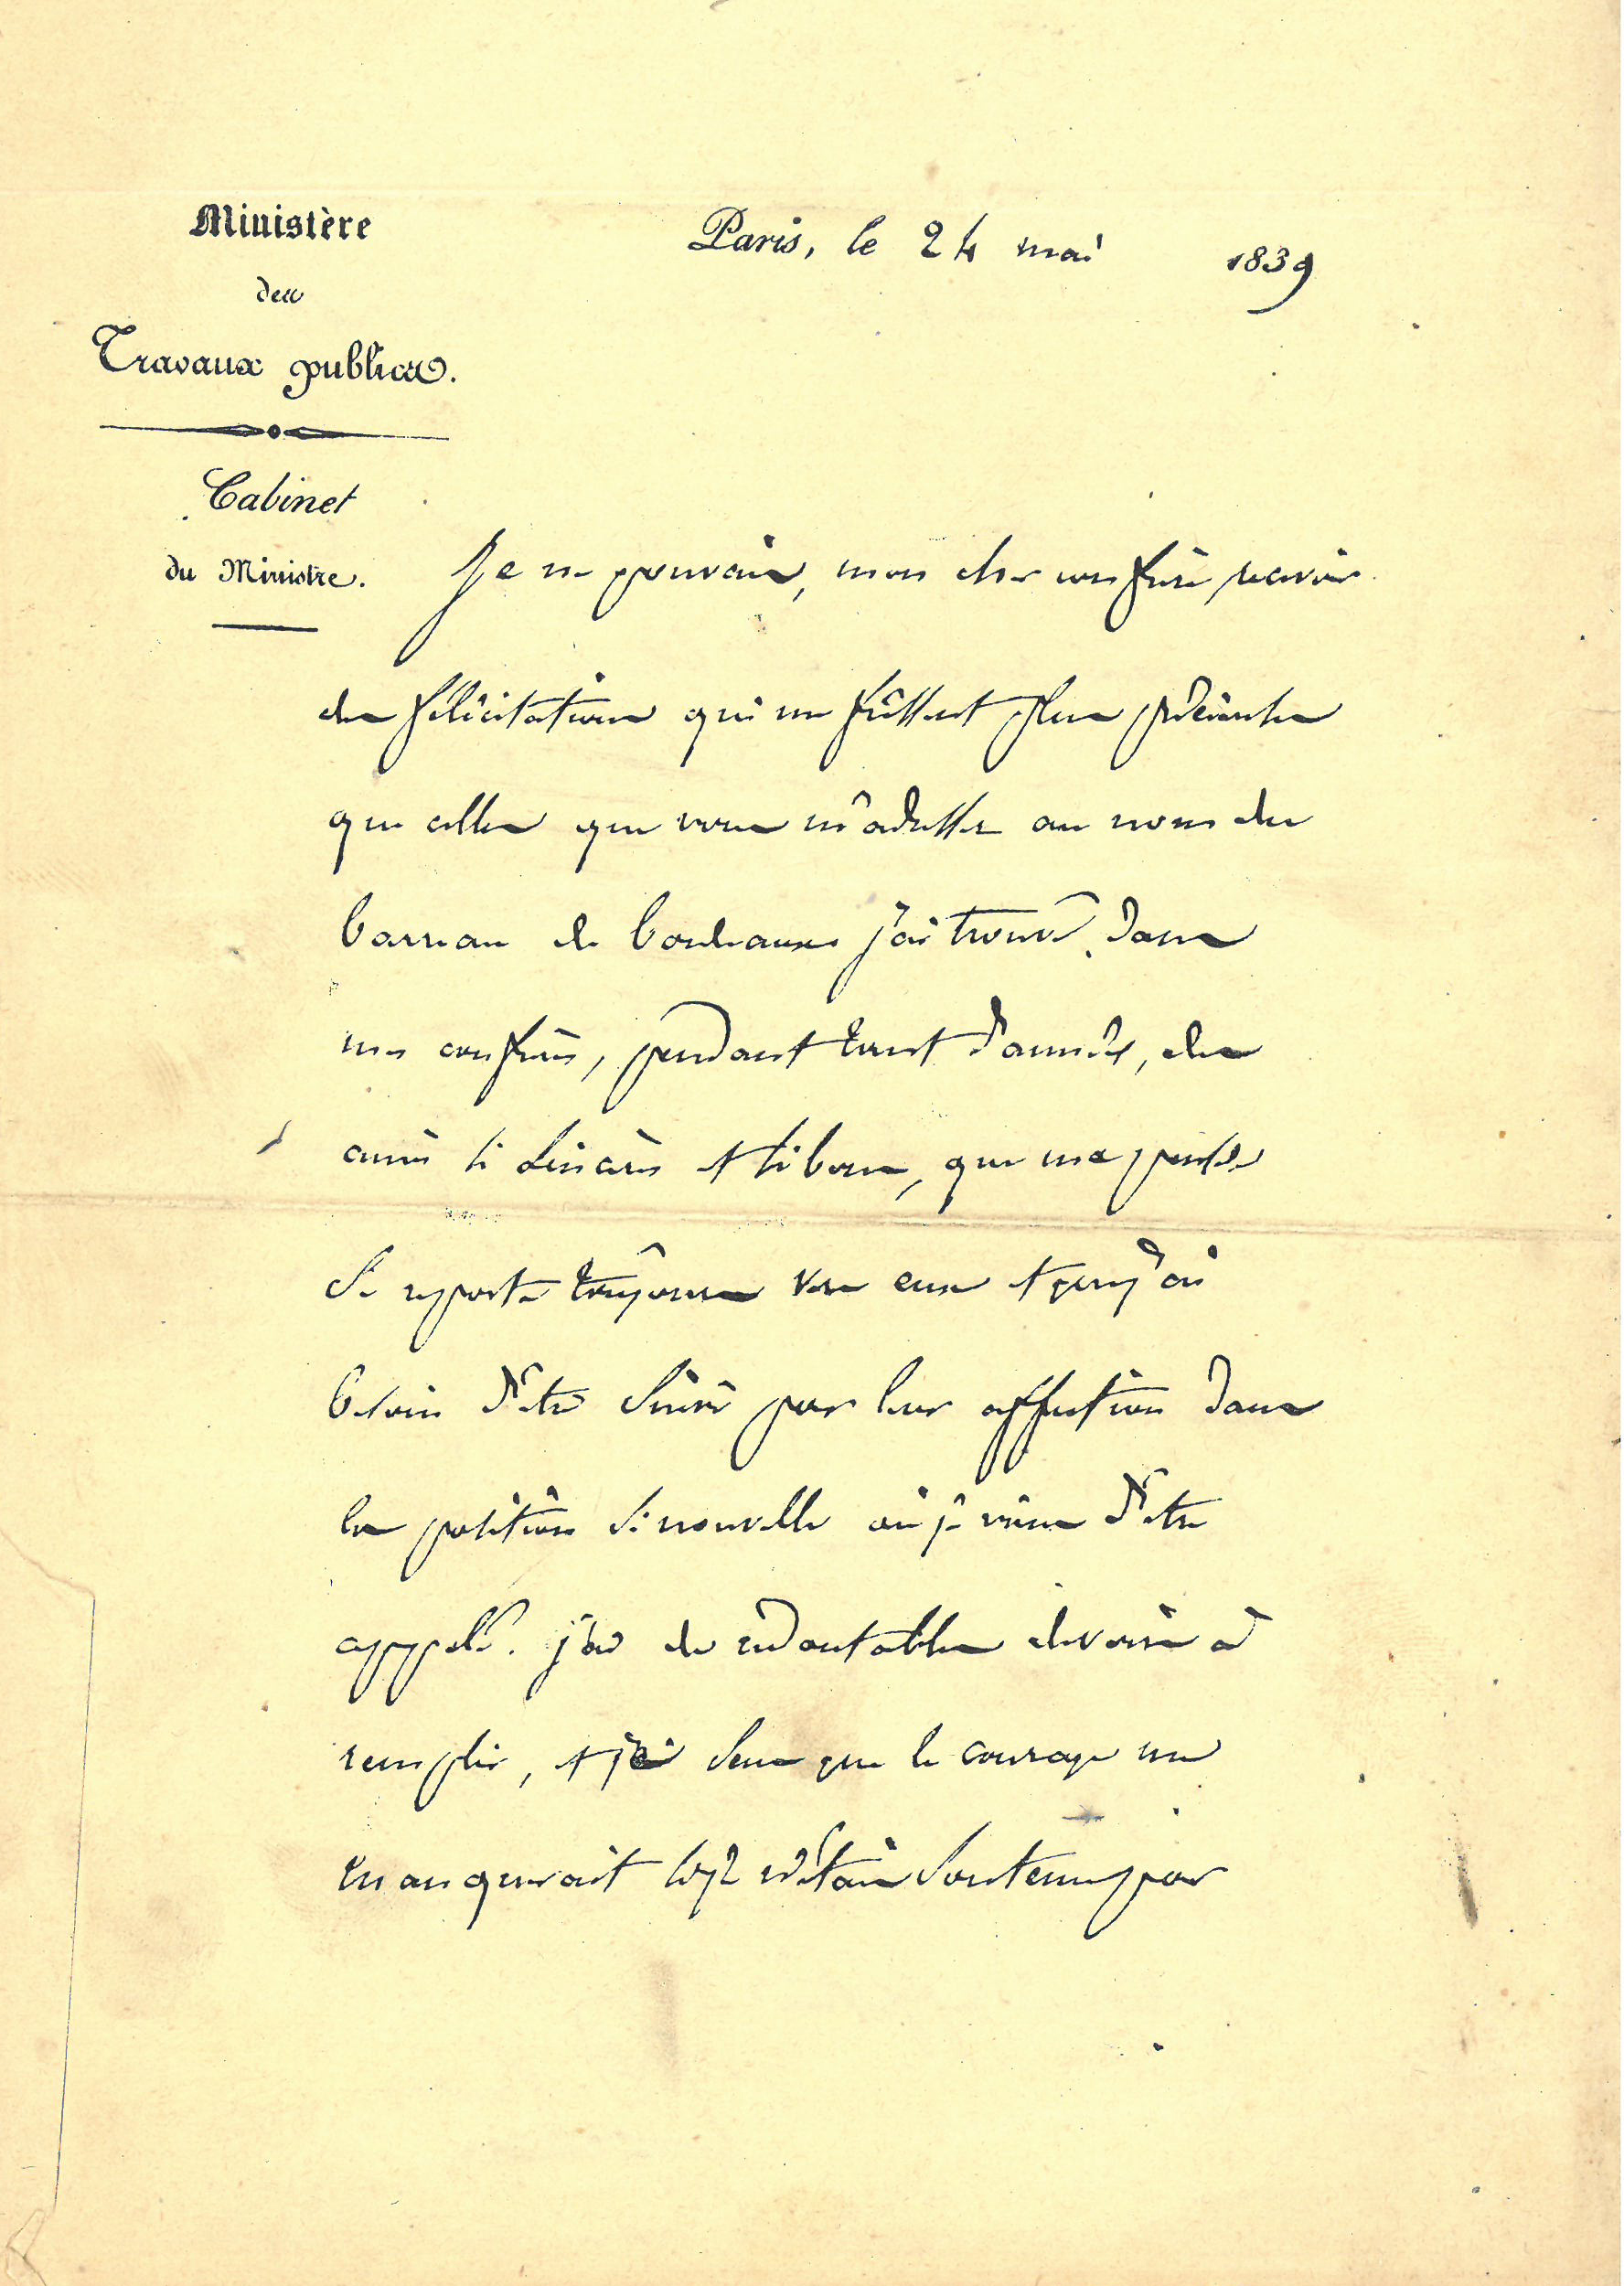 Ministère
des
Travaux publics.
Cabinet
du Ministre.
Paris, le 24 mai 1839
Je ne pouvais, mon cher confrère recevoir
des félicitations qui me fussent plus précieuses
que celles que vous m'adressez au nom du
barreau de bordeaux j'ai trouvé dans
mes confrères, pendant tant d'années, des
amis si sincères et si bons, que ma pensée
se reporte toujours vers eux et que j'ai
besoin d'être suivi par leur affection dans
la position si nouvelle où je viens d'être
appelé. j'ai de redoutables devoirs à
remplir, et je sens que le courage me
manquerait si je n'étais soutenu par